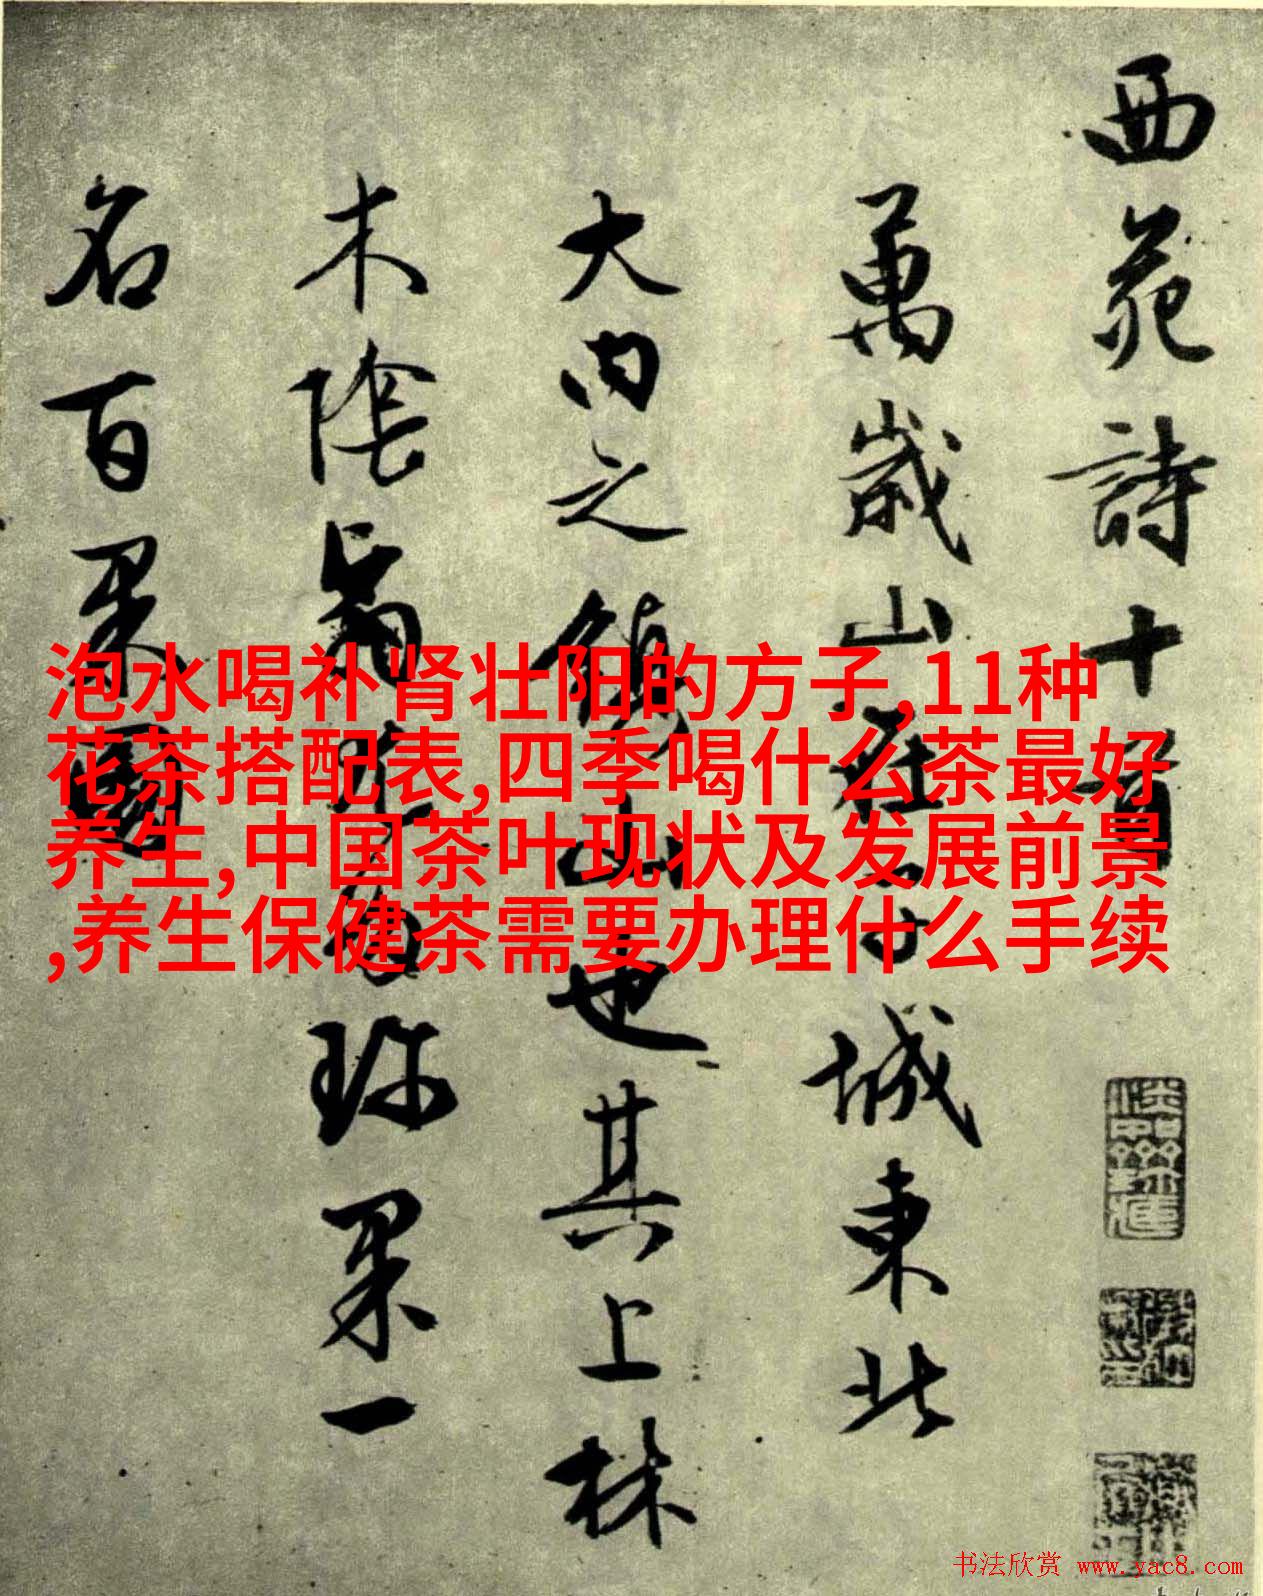 西苑詩十首
萬歲山在子城東北
大内之鎮山也其上林
木陰翳
珎果一
名百果園
泡水喝补肾壮阳的方子,11种
花茶搭配表,四季喝什么茶最好
养生,中国茶叶现状及发展前景
,养生保健茶需要办理什么手续
书法欣赏 www.yac8.com